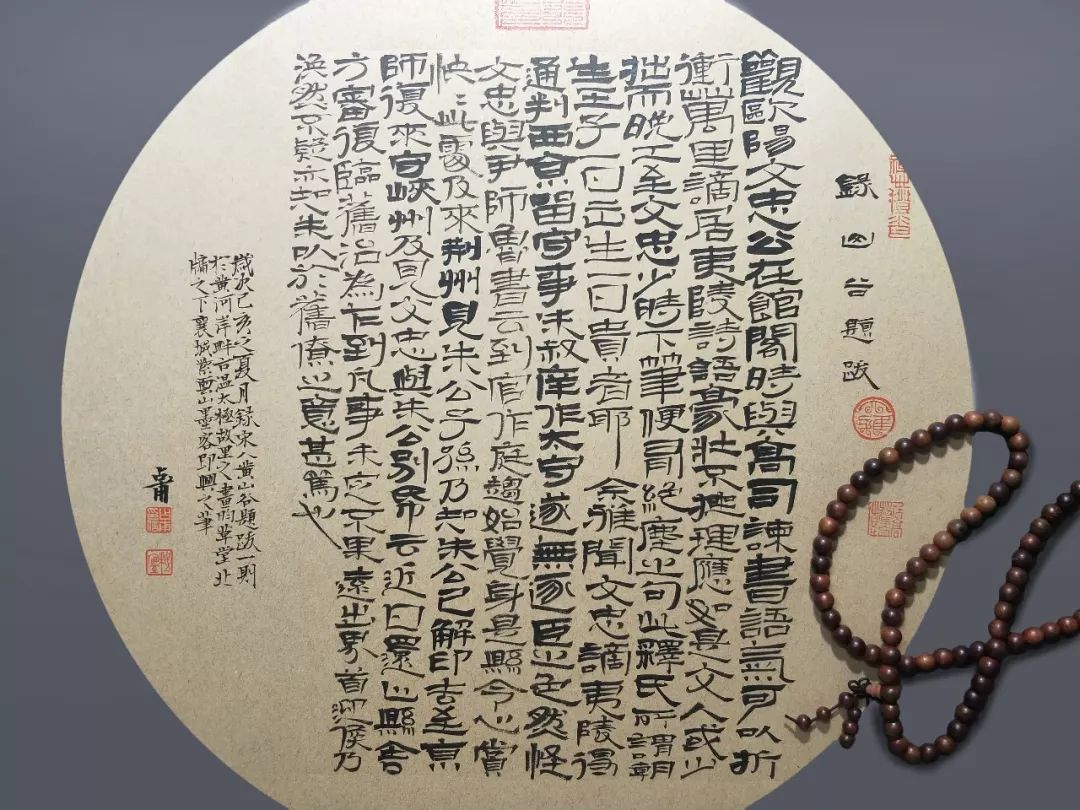 錄山谷題跋
觀歐陽文忠公在館閣時與高司諫書語氣可以折
衝萬里謫居夷陵詩語豪壯不挫理應如是文人或少
拙而晚工至文忠少時下筆便有絕塵之句此釋氏所謂朝
生王子一日出生一日貴者耶 余雅聞文忠謫夷陵得
通判西京留守事朱叔庠作太守遂無逐臣之色然怪
文忠與尹師魯書云到官作庭趨始覺身是縣令心嘗
怏〻此處及來荊州見朱公子孫乃知朱公已解印去至京
師復來守峽州及見文忠與朱公別帋云近日還止縣舍
方審復臨舊治為乍到凡事未定不果遠出界首迎候乃
渙然不疑亦知朱以於舊僚之意甚篤也
歲次己亥之夏月錄宋人黃山谷題跋一則
於黃河岸畔古溫太極故里之畫明草堂北
牖之下襄城紫雲山墨客即興之筆